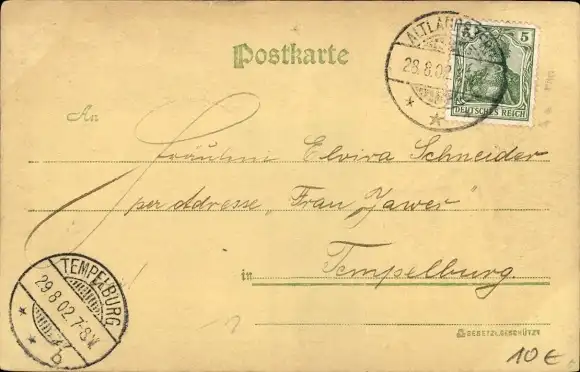 Postkarte
ALTLANDSB
28.8.02
5
DEUTSCHES REICH
An
Fräulein Elvira Schneider
per Adresse "Frau Jawer"
in Tempelburg
TEMPELBURG
29.8.02 7-8V.
b
GESETZL.GESCHÜTZT
10 €